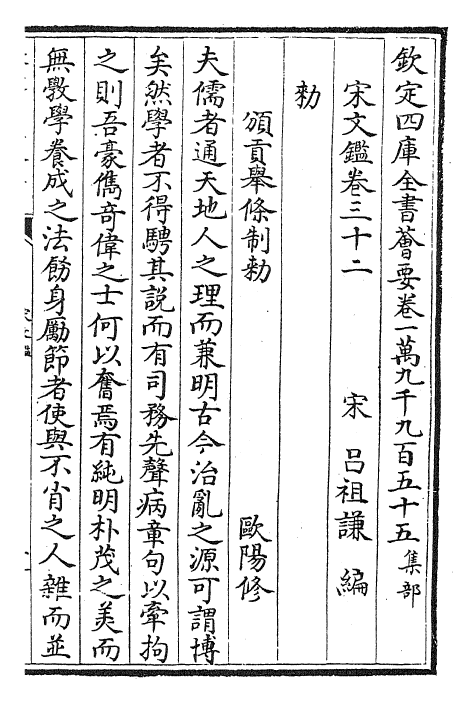 欽定四庫全書薈要卷一萬九千九百五十五 集部
宋文鑑卷三十二 宋 呂祖謙 編
勅
頒貢舉條制勅 歐陽修
夫儒者通天地人之理而兼明古今治亂之源可謂博
矣然學者不得騁其說而有司務先聲病章句以牽拘
之則吾豪儁奇偉之士何以奮焉有純明朴茂之美而
無斆學養成之法飭身勵節者使與不肖之人雜而並